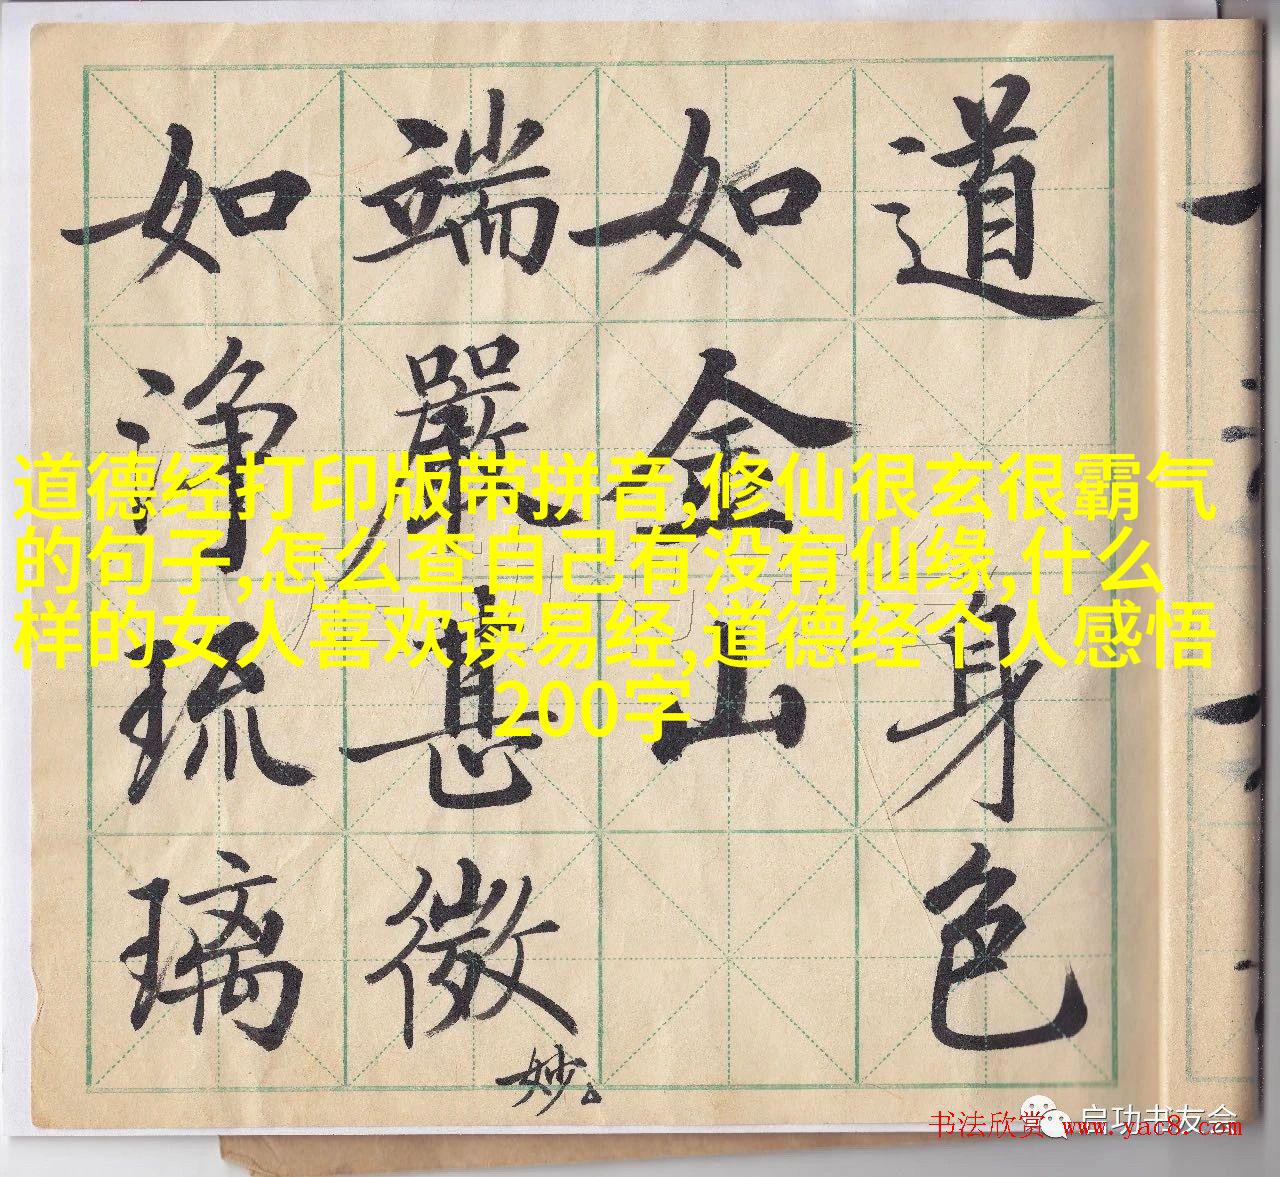 道
身
色
如金山
端嚴甚微
妙
如淨琉璃
道德经打印版带拼音,修仙很玄很霸气
的句子,怎么查自己有没有仙缘,什么
样的女人喜欢读易经,道德经个人感悟
200字
启功书友会
书法欣赏 www.yac8.com